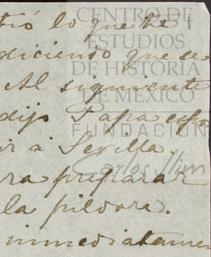 lo que he
diciendo que se
Al siguiente
dijo Papa esp
ir a Sevilla
ra preparar
la pildora.
inmediatamen
CENTRO DE
ESTUDIOS
DE HISTORIA
DE MEXICO
FUNDACIÓN
Carlos Slim